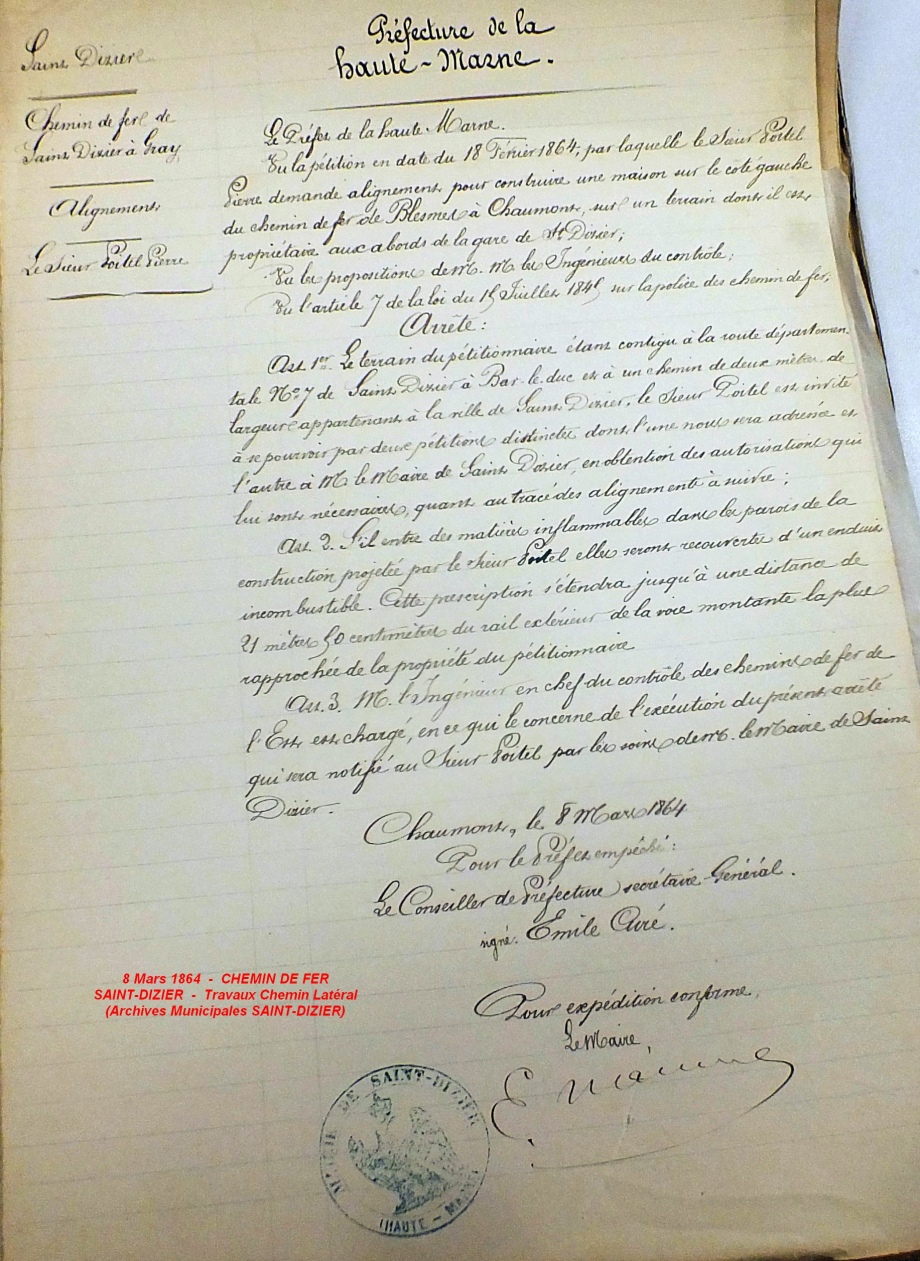 Préfecture de la
haute-Marne.
Saint Dizier
Chemin de fer de
Saint Dizier à Gray
Alignement
Le Sieur Poitel Pierre
Le Préfet de la haute Marne.
Vu la pétition en date du 18 Février 1864, par laquelle le Sieur Poitel
Pierre demande alignement pour construire une maison sur le côté gauche
du chemin de fer de Blesmes à Chaumont, sur un terrain dont il est
propriétaire aux abords de la gare de St Dizier;
Vu les propositions de M. M. les Ingénieurs du contrôle;
Vu l'article 7 de la loi du 15 Juillet 1845 sur la police des chemin de fer;
Arrête:
Art. 1er. Le terrain du pétitionnaire étant contigu à la route départemen
tale No 7 de Saint Dizier à Bar-le-duc et à un chemin de deux mètres de
largeur appartenant à la ville de Saint Dizier, le Sieur Poitel est invité
à se pourvoir par deux pétitions distinctes dont l'une nous sera adressée et
l'autre à M. le Maire de Saint Dizier, en obtention des autorisations qui
lui sont nécessaires, quant au tracé des alignements à suivre;
Art. 2. S'il entre des matières inflammables dans les parois de la
construction projetée par le Sieur Poitel elles seront recouvertes d'un enduit
incombustible. Cette prescription s'étendra jusqu'à une distance de
21 mètres 50 centimètres du rail extérieur de la voie montante la plus
rapprochée de la propriété du pétitionnaire
Art. 3. M. l'Ingénieur en chef du contrôle des chemins de fer de
l'Est est chargé, en ce qui le concerne de l'exécution du présent arrêté
qui sera notifié au Sieur Poitel par les soins de M. le Maire de Saint
Dizier.
Chaumont, le 8 Mars 1864
Pour le Préfet empêché:
Le Conseiller de Préfecture, secrétaire Général.
signé. Emile Curé.
8 Mars 1864 - CHEMIN DE FER
SAINT-DIZIER - Travaux Chemin Latéral
(Archives Municipales SAINT-DIZIER)
Pour expédition conforme,
Le Maire,
MAIRIE DE SAINT-DIZIER
(HAUTE-MARNE)